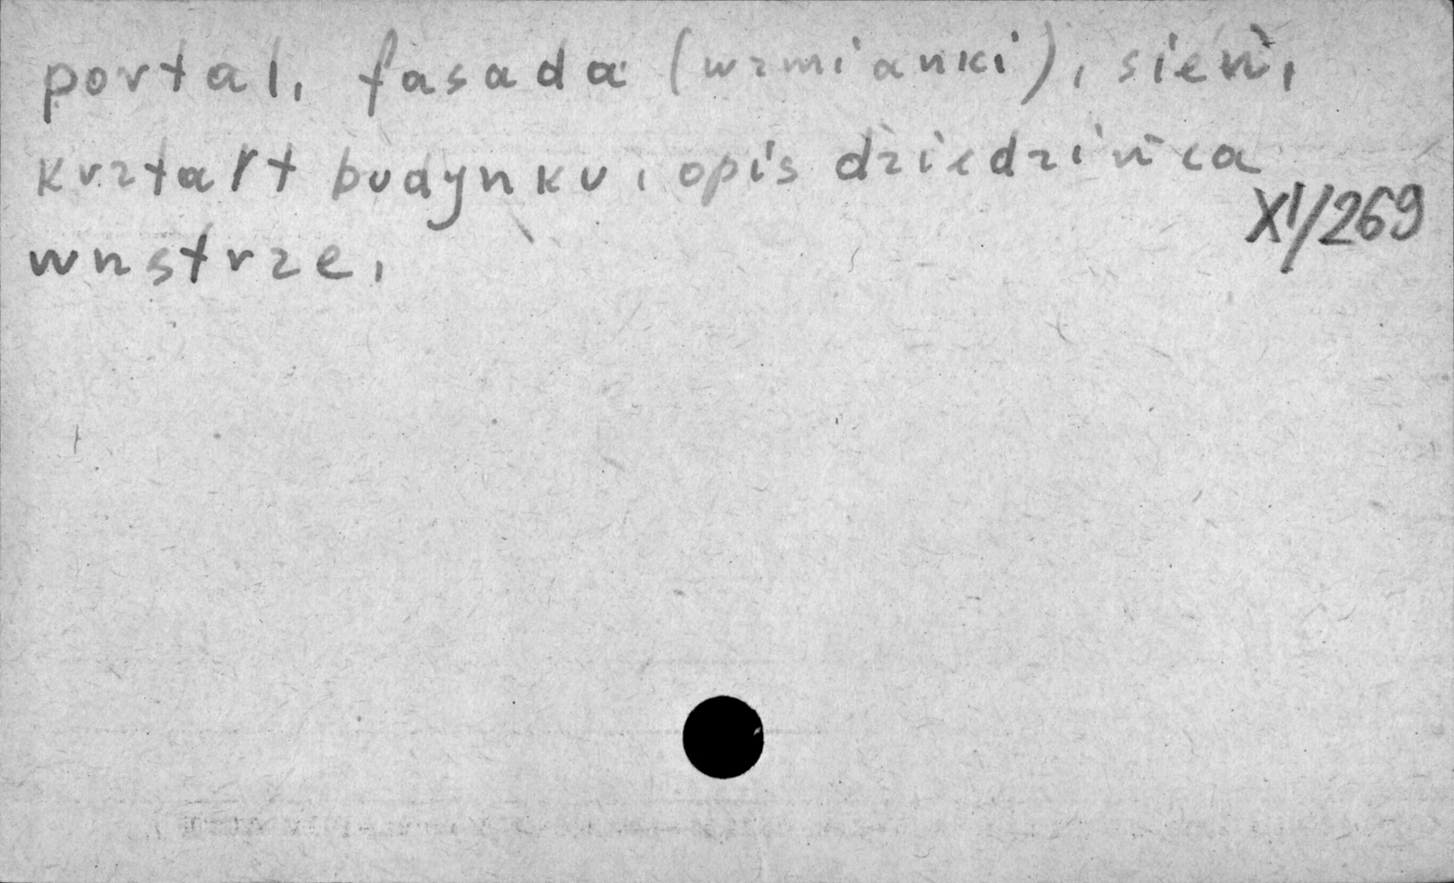 portal, fasada (wzmianki), sień,
kształt budynku, opis dziedzińca
XI/269
wnstrze,